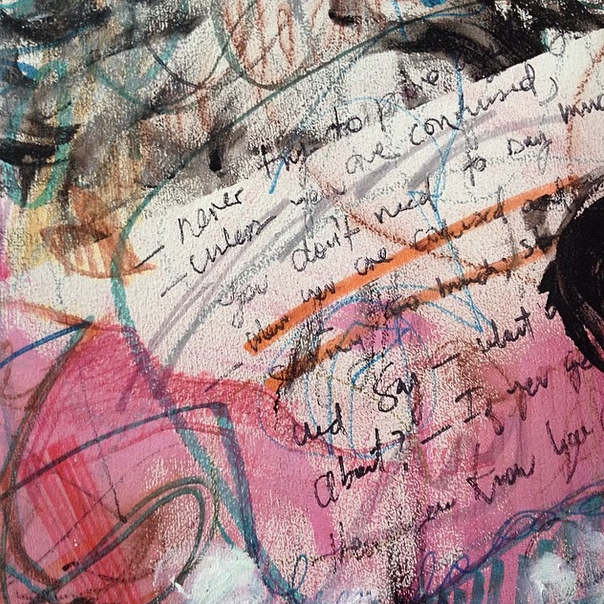 - never try to
- unless you are confused,
you don't need to say much
when you are confused
too much,
and say - what
about? - If you ge
then you know you